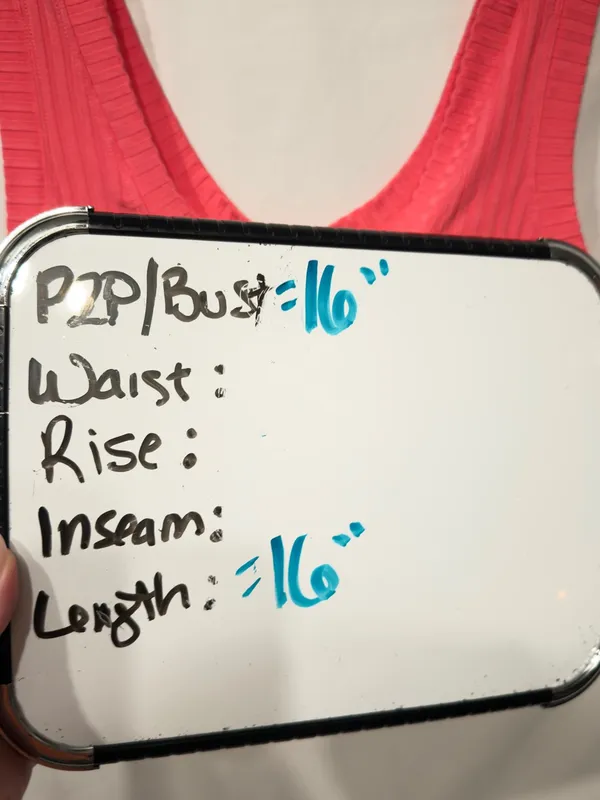 P2P/Bust=16"
Waist:
Rise:
Inseam:
Length: =16"